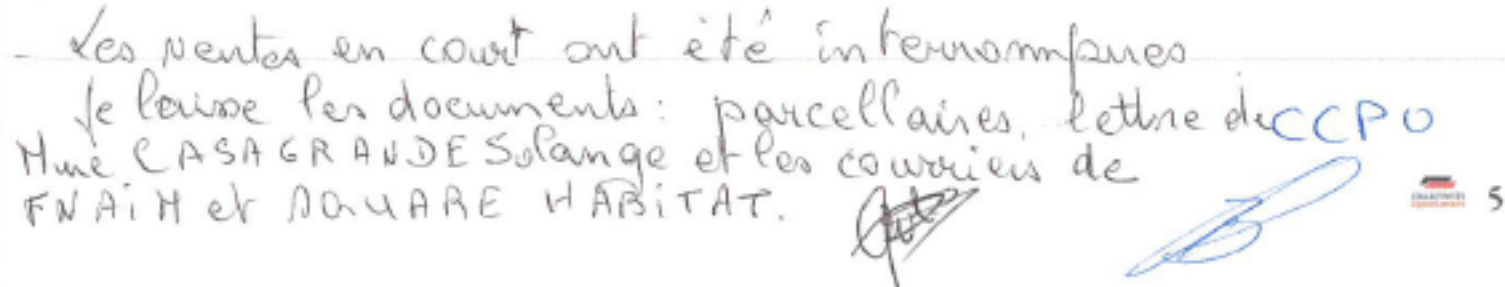 - Les ventes en court ont été interrompues
Je laisse les documents : parcellaires, lettre de CCPO
Mme CASAGRANDE Solange et les courriers de
FNAiM et SQUARE HABiTAT.
5